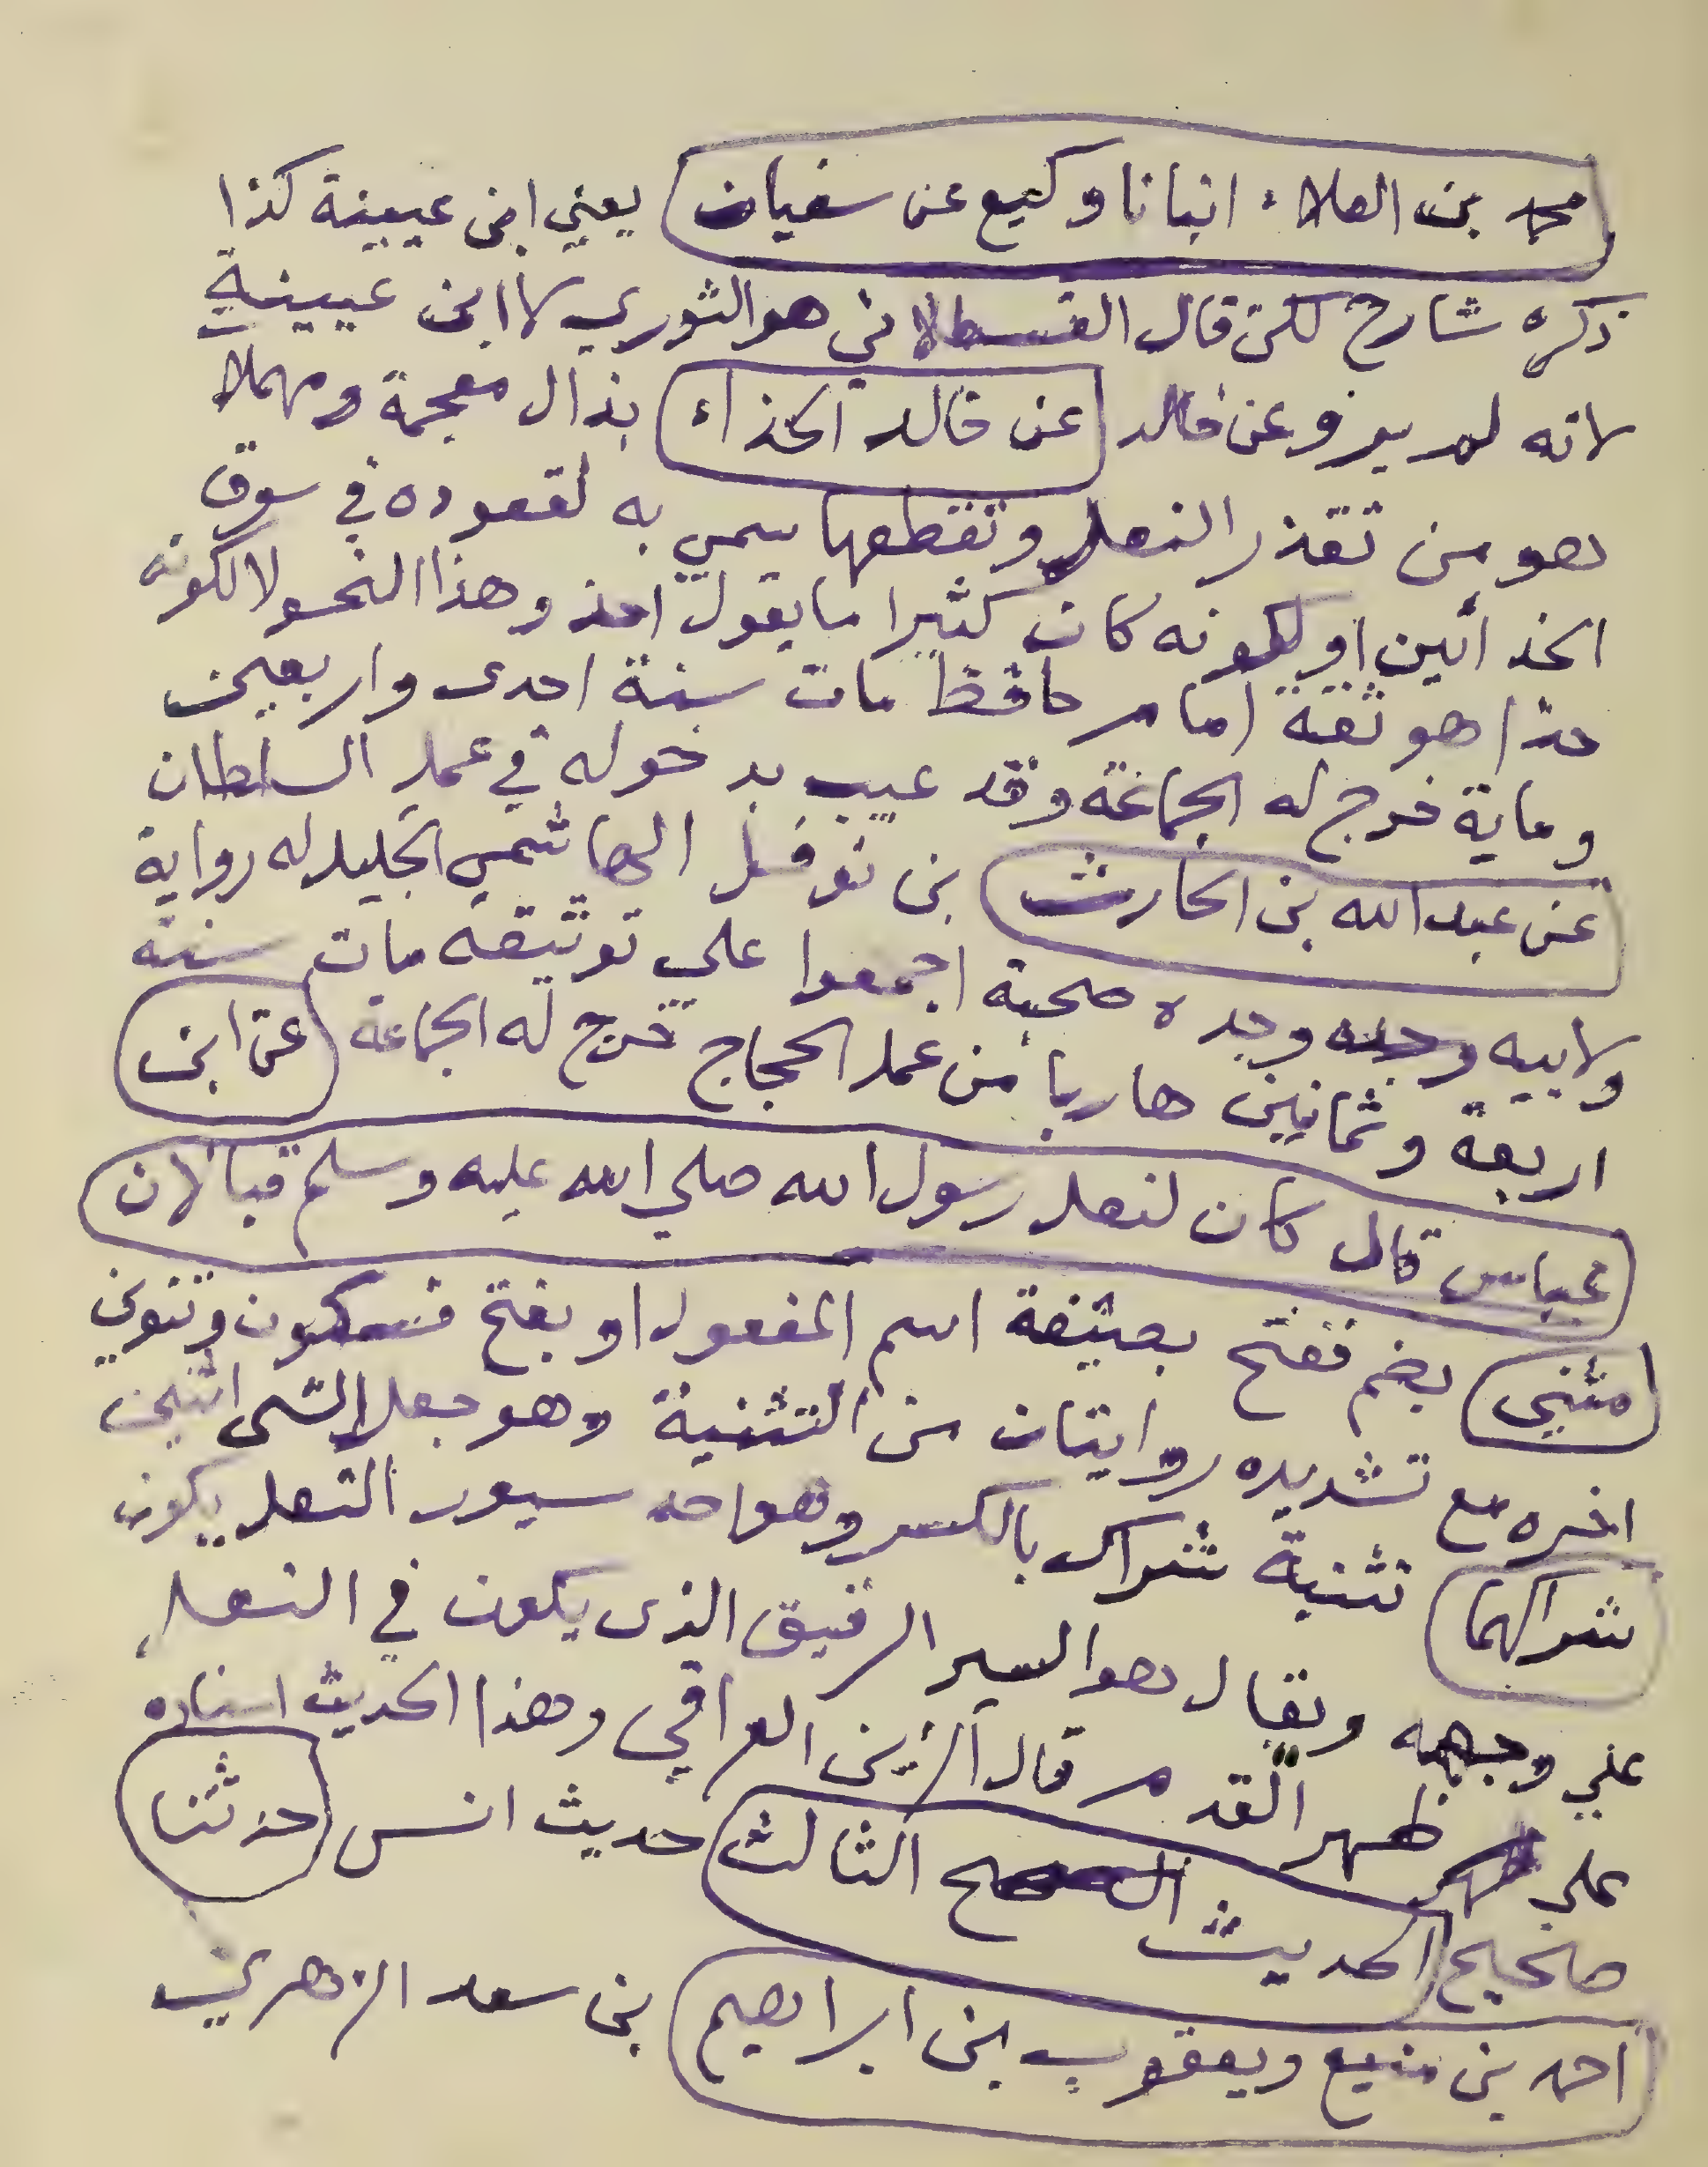 محمد بن العلاء انبانا وكيع عن سفيان يعني ابن عيينة كذا
ذكره شارح لكن قال القسطلاني هو الثوري لا ابن عيينة
لانه لم يرو عن خالد عن خالد الحذاء بذال معجمة ومهملا
هو من تقدر النعل وتقطعها سمي به لقعوده في سوق
الحذائين او لكونه كان كثيرا ما يقول احذ وهذا النحو لا لكونه
حذا هو ثقة امام حافظ مات سنة احدى واربعين
وماية خرج له الجماعة وقد عيب بدخوله في عمل السلطان
عن عبد الله بن الحارث بن نوفل الهاشمي الجليل له رواية
ولابيه وجده صحبة اجمعوا على توثيقه مات سنة
اربعة وثمانين هاربا من عمل الحجاج خرج له الجماعة عن ابن
عباس قال كان لنعل رسول الله صلي الله عليه وسلم قبالان
مثني بضم ففتح بصيغة اسم المفعول او بفتح فسكون وتنوين
اخره مع تشديده روايتان من التثنية وهو جعل الشى اثنين
شراكهما تثنية شراك بالكسر وهو احد سيور النعل يكون
علي وجهه ويقال هو السير الرقيق الذى يكون في النعل
علي ظهر القدم قال الزين العراقي وهذا الحديث اسناده
صحيح الحديث الثالث حديث انس حدثنا
احمد بن منيع ويعقوب بن ابراهيم بن سعد الزهري